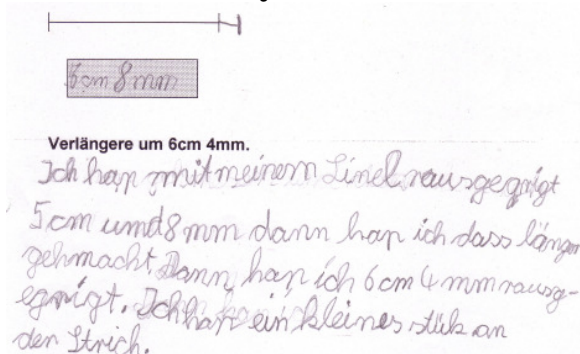 5cm 8mm
Verlängere um 6cm 4mm.
Ich hap mit meinem Linel rausgegrigt
5cm umd 8mm dann hap ich dass länger
gehmacht Dann hap ich 6cm 4mm rausg-
egrigt. Ich hap ein kleines stük an
den Strich.